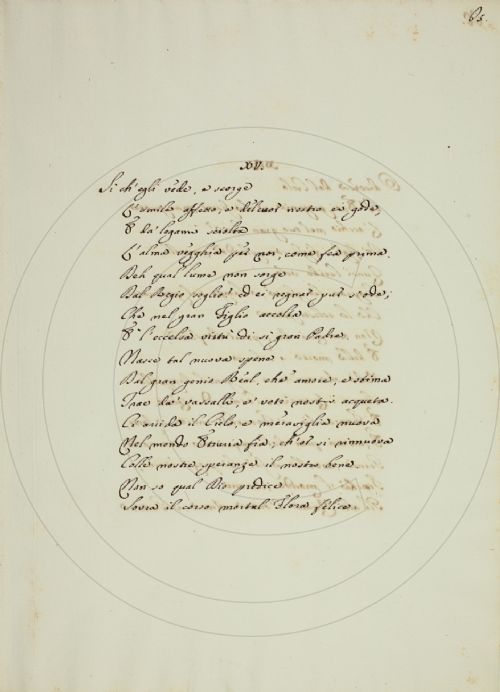 65.
XV.
Si ch'egli vede, e scorge
L'umile affetto, e del ben nostro ei gode,
E da' legami sciolta
L'alma vegghia per noi, come fea prima.
Deh qual lume non sorge
Dal Regio soglio! ed ei regnar pur s'ode;
Che nel gran Figlio accolta
E' l'eccelsa virtù di si gran Padre
Nasce tal nuova spene
Dal gran genio Real, che amore, e stima
Trae da' vassalli, e' voti nostri acqueta.
Ci arrida il Cielo, e meraviglia nuova
Nel mondo Etruria fia; ch'ei si rinnuova
Colle nostre speranze il nostro bene
Non so qual Dio predice
Sovra il corso mortal Flora felice